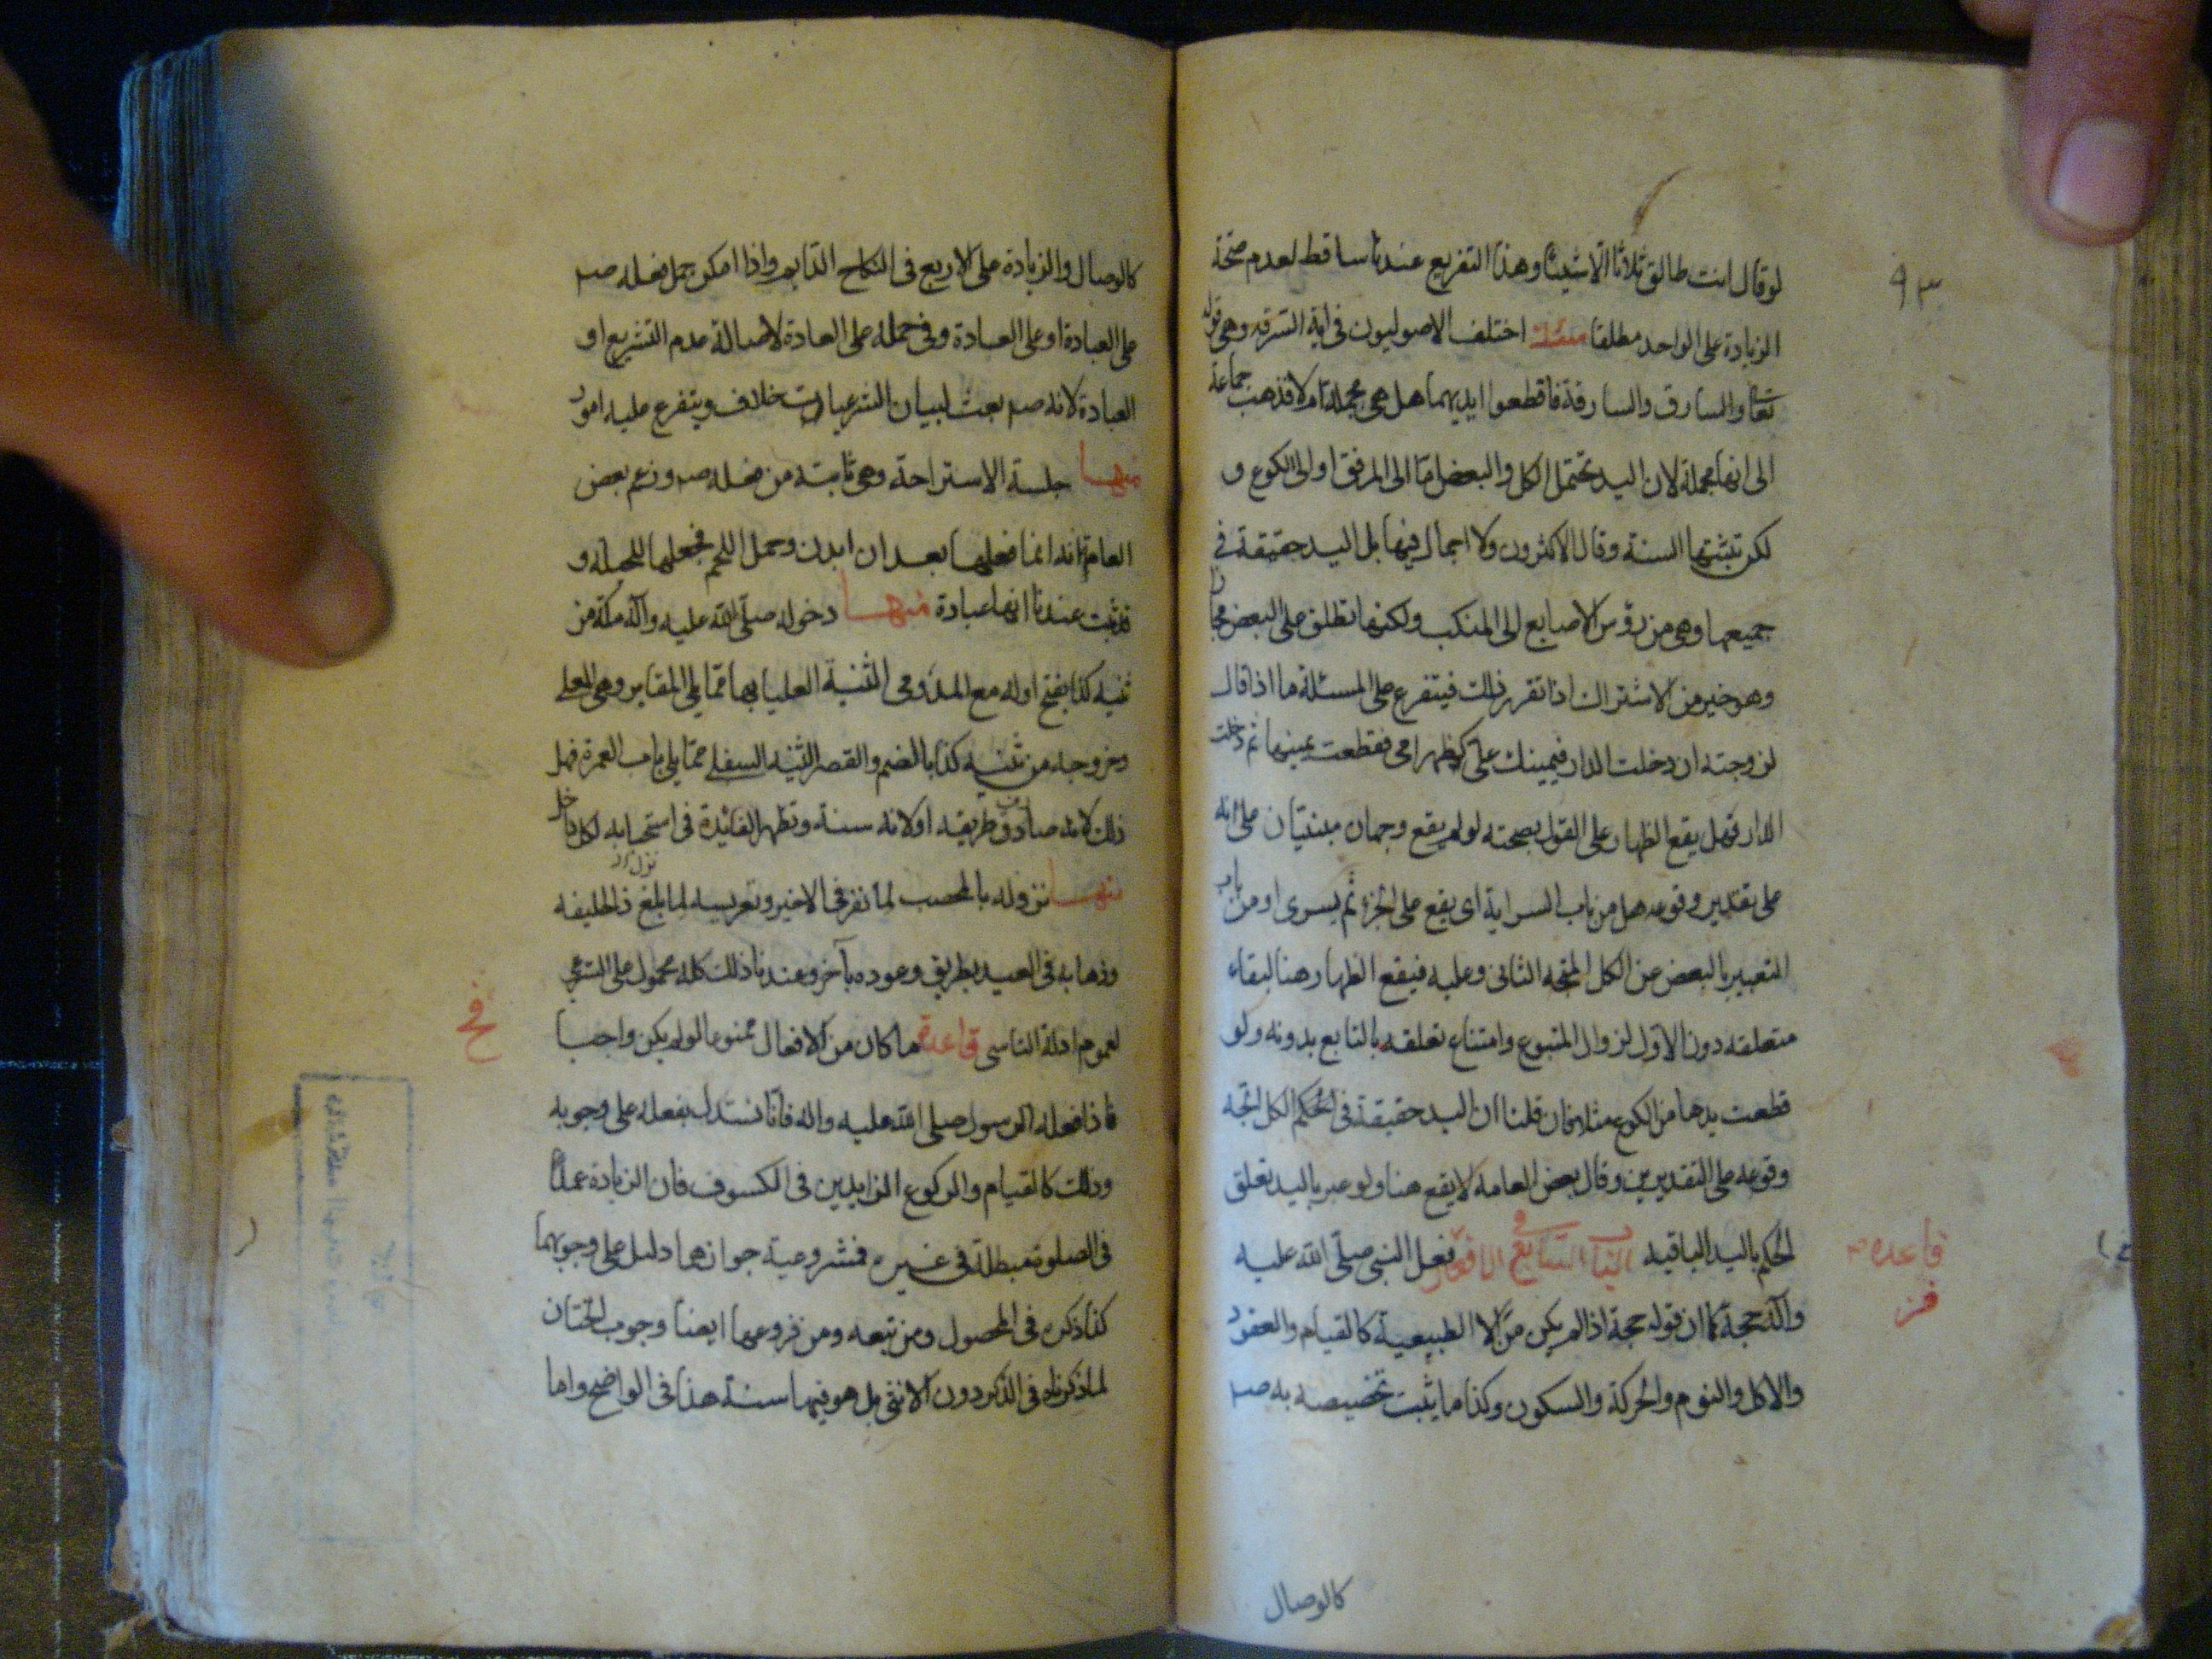 ٩٣
لو قال انت طالق ثلاثا الا شيئا وهذا التفريع عندنا ساقط لعدم صحة
الزيادة على الواحد مطلقا مسئلة اختلف الاصوليون فى اية السرقه وهى قوله
تعا والسارق والسارقة فاقطعوا ايديهما هل هى مجملة ام لا فذهب جماعة
الى انها مجملة لان اليد تحتمل الكل والبعض اما الى المرفق او الى الكوع و
لكن تبينتها السنة وقال الاكثرون ولا اجمال فيها بل اليد حقيقة فى
جميعها وهى من رؤس الاصابع الى المنكب ولكنها تطلق على البعض مجازا
وهو خير من الاشتراك اذا تقرر ذلك فيتفرع على المسئلة ما اذا قال
لزوجته ان دخلت الدار فيمينك على كظهر امى فقطعت يمينها ثم دخلت
الدار فهل يقع الظهار على القول بصحته لو لم يقع وجهان مبنيان على انه
على تقدير وقوعه هل من باب السراية اى يقع على الجزء ثم يسرى او من باب
التعبير بالبعض عن الكل المتجه الثانى وعليه فيقع الظهار هنا لبقاء
متعلقه دون الاول لزوال المتبوع وامتناع تعلقه بالتابع بدونه ولو
قطعت يدها من الكوع مثلا فان قلنا ان اليد حقيقة فى الحكم الكل اتجه
وقوعه على التقديرين وقال بعض العامه لا يقع هنا ولو عبر باليد تعلق
الحكم باليد الباقيه الباب السابع فى الافعال فعل النبى صلى الله عليه
قاعده
فز
واله حجة كما ان قوله حجة اذا لم يكن من الا الطبيعية كالقيام والعقود
والاكل والنوم والحركة والسكون وكذا ما يثبت تخصيصه به صم
كالوصال
كالوصال والزيادة على الاربع فى النكاح الدايم واذا امكن حمل فعله صم
على العبادة او على العبادة وفى حمله على العادة لاصالة عدم التشريع او
العبادة لانه صم بعث لبيان الشرعيات خلاف ويتفرع عليه امور
منها جلسة الاستراحة وهى ثابتة من فعله صم وزعم بعض
العامة انه انما فعلها بعد ان ابدن وحمل اللحم فجعلها للحملة و
قد ثبت عندنا انها عبادة منها دخوله صلى الله عليه واله مكة من
ثنيه كذا بفتح اوله مع المد وهى الثنية العليا بها مما يلى المقابر وهى المعلى
وخروجه من ثنيه كذا بالضم والقصر الثنيه السفلى مما يلى باب العمرة فهل
ذلك لانه صادف طريقه او لانه سنة وتظهر الفائدة فى استحبابه لكل داخل
منها نزوله بالمحصب لما نفر فى الاخير وتعريسه لما بلغ ذا الحليفه
وذهابه فى العيد بطريق وعوده بآخر وعندنا ذلك كله محمول على الشرعى
لعموم ادلة التاسى قاعدة ما كان من الافعال ممنوعا لو لم يكن واجبا
فح
فاذا فعله الرسول صلى الله عليه واله فانا نستدل بفعله على وجوبه
وذلك كالقيام والركوع الزايدين فى الكسوف فان الزيادة عمدا
فى الصلوة مبطلة فى غيره فمشروعية جوازهما دليل على وجوبهما
كذا ذكره فى المحصول ومن تبعه ومن فروعها ايضا وجوب الختان
لما ذكرناه فى الذكر دون الانثى بل هو فيها سنة هذا فى الواضح واما